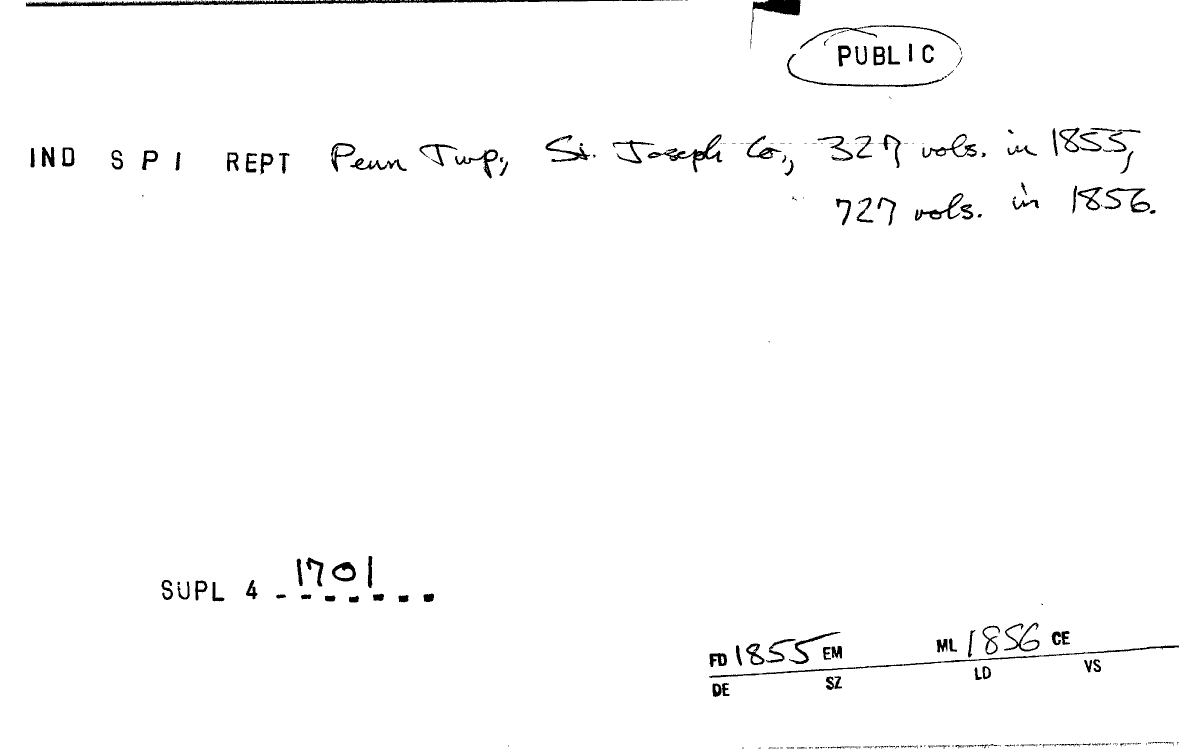 PUBLIC
IND S P I REPT Penn Twp, St. Joseph Co., 327 vols. in 1855,
727 vols. in 1856.
SUPL 4 1701
FD 1855 EM ML 1856 CE
DE SZ LD VS